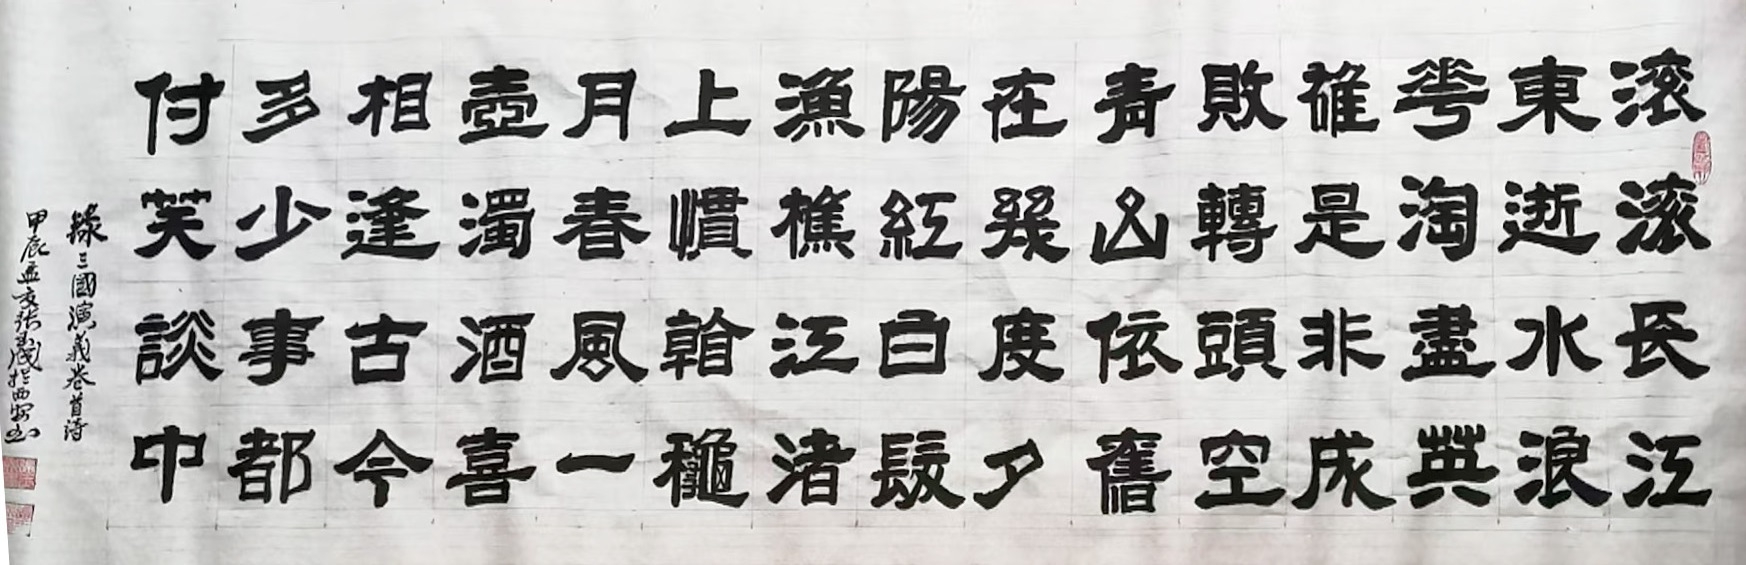 滚滚長江
東逝水浪
花淘盡英
雄是非成
敗轉頭空
青山依舊
在幾度夕
陽紅白髮
漁樵江渚
上慣看秋
月春風一
壺濁酒喜
相逢古今
多少事都
付笑談中
錄三國演義卷首詩
甲辰孟夏張 成於西安